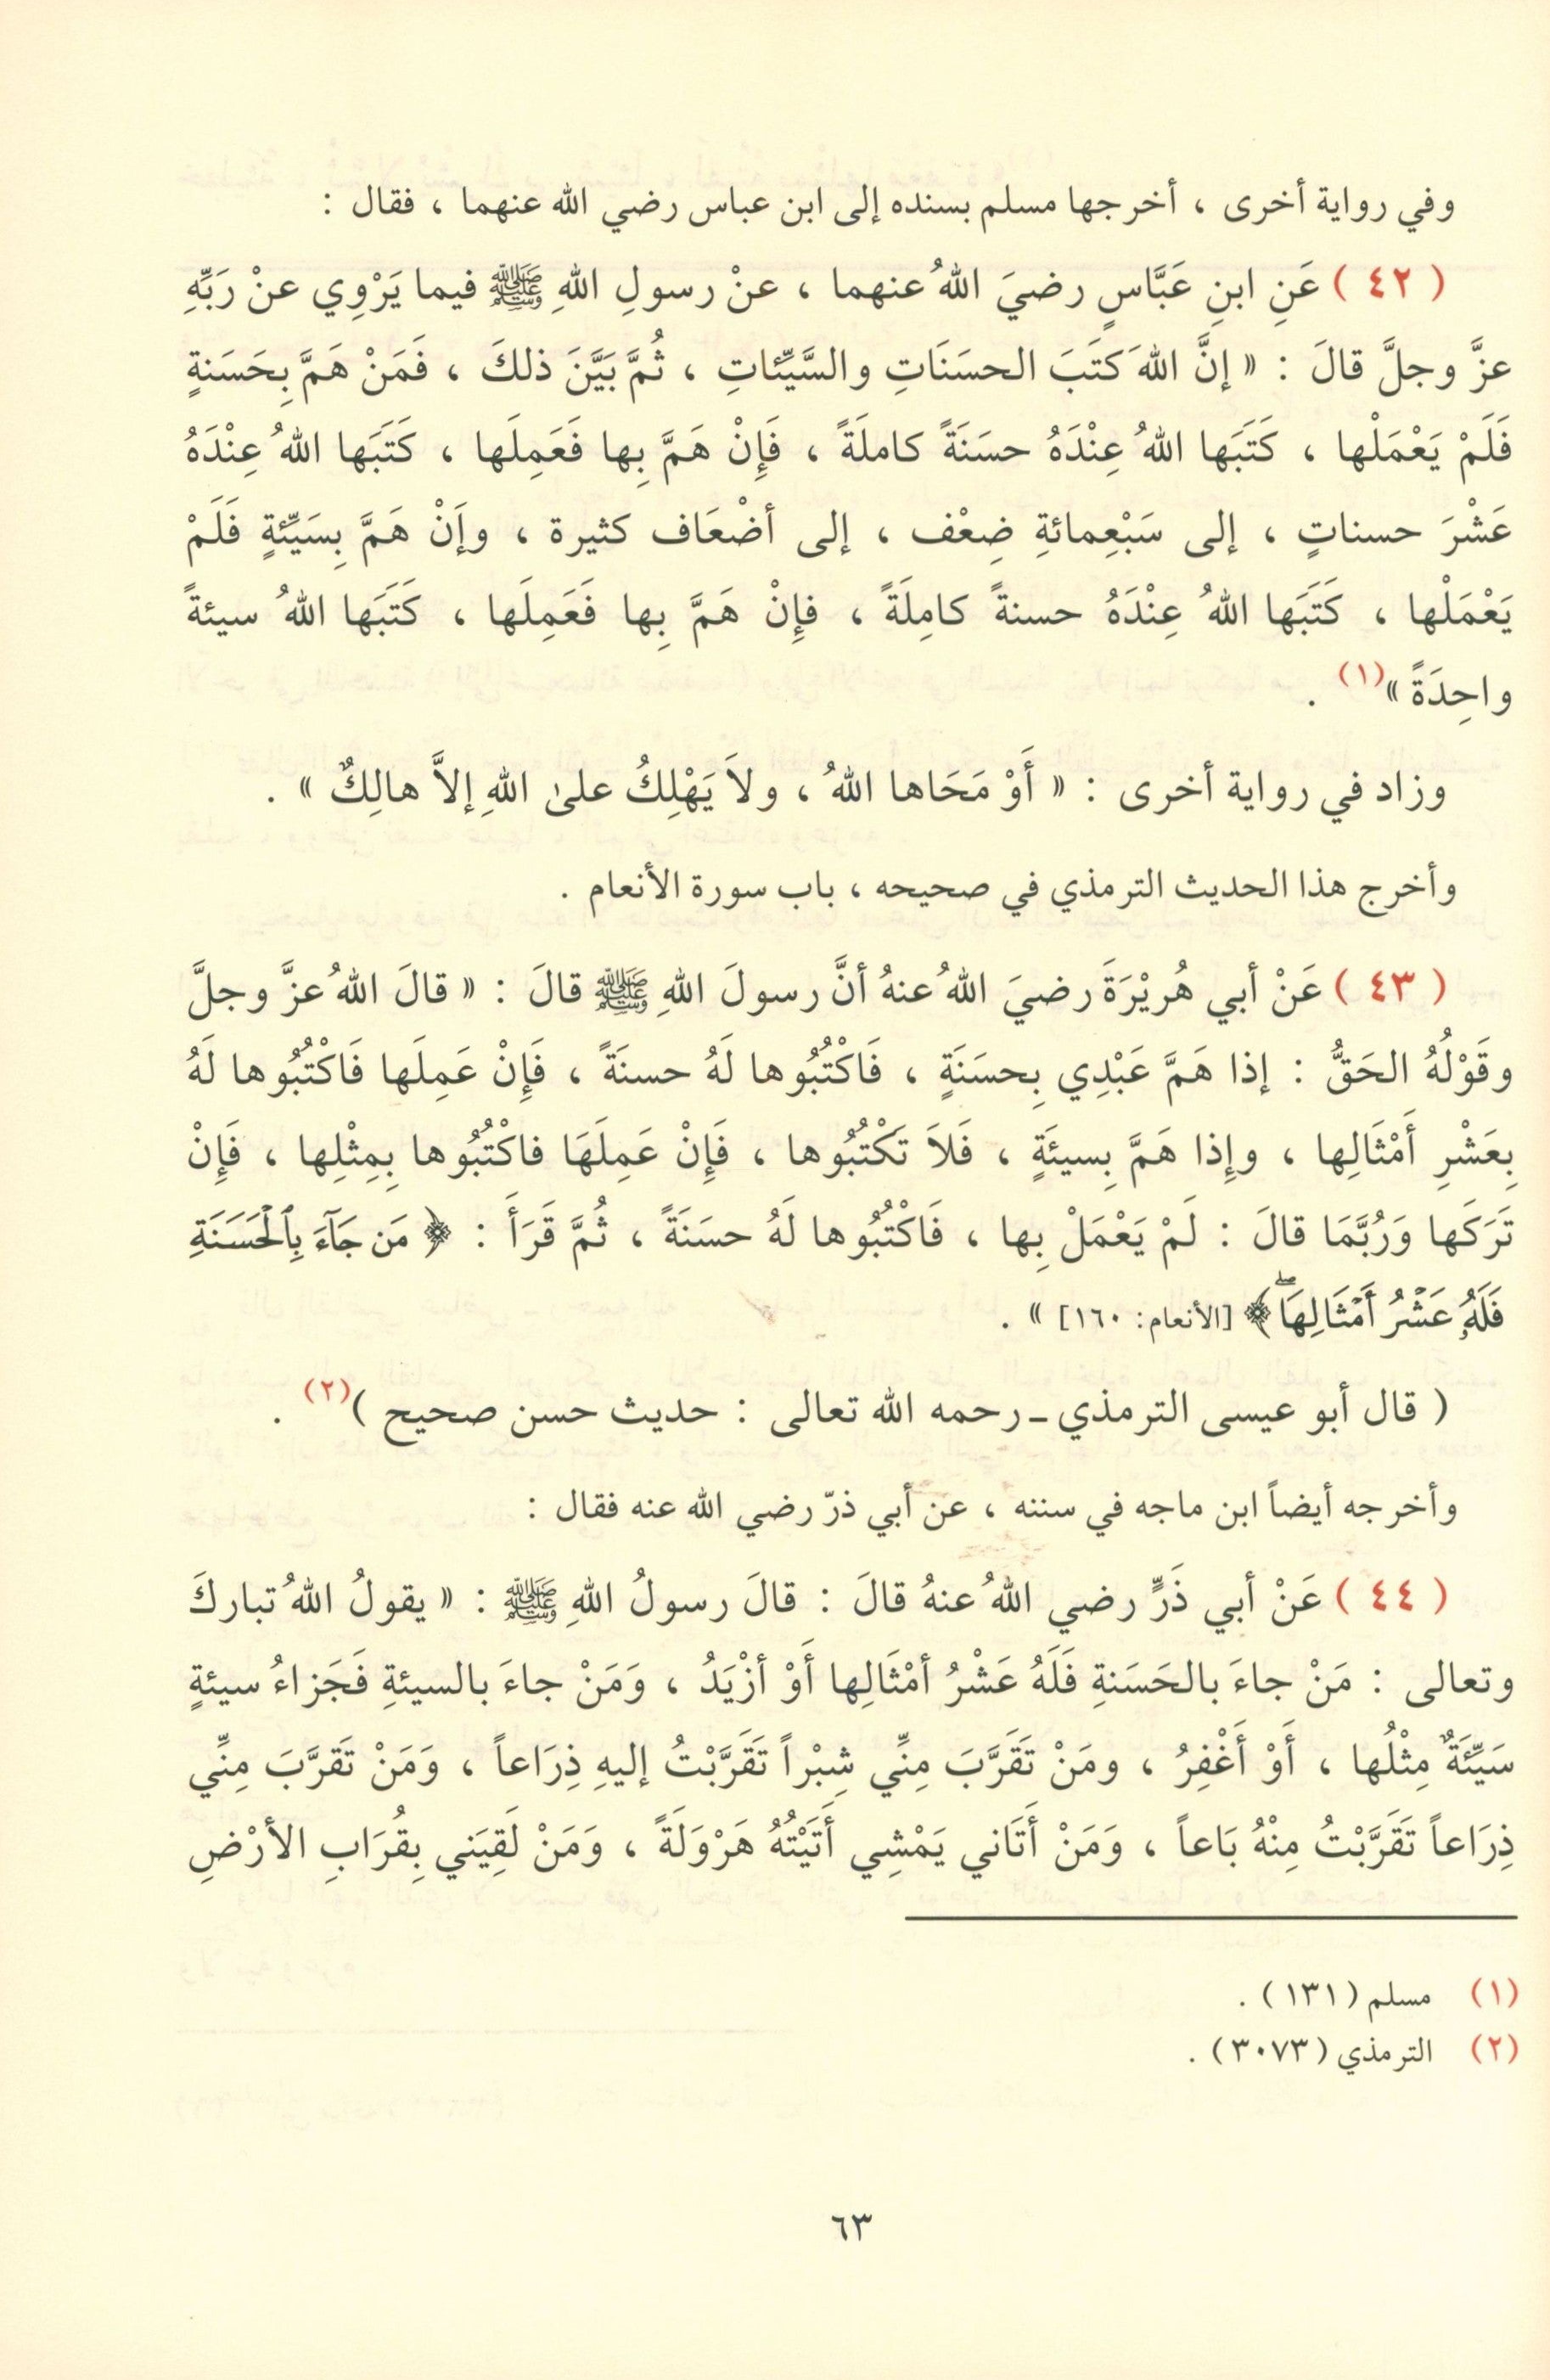 وفي رواية أخرى ، أخرجها مسلم بسنده إلى ابن عباس رضي الله عنهما ، فقال :
( ٤٢ ) عَنِ ابنِ عَبَّاسٍ رضيَ اللهُ عنهما ، عنْ رسولِ اللهِ ﷺ فيما يَرْوِي عنْ رَبِّهِ
عزَّ وجلَّ قالَ : « إنَّ اللهَ كَتَبَ الحسَنَاتِ والسَّيِّئاتِ ، ثُمَّ بَيَّنَ ذلكَ ، فَمَنْ هَمَّ بِحَسَنةٍ
فَلَمْ يَعْمَلْها ، كَتَبَها اللهُ عِنْدَهُ حسَنَةً كاملَةً ، فَإِنْ هَمَّ بِها فَعَمِلَها ، كَتَبَها اللهُ عِنْدَهُ
عَشْرَ حسناتٍ ، إلى سَبْعِمائةِ ضِعْف ، إلى أضْعَاف كثيرة ، وإنْ هَمَّ بِسَيِّئةٍ فَلَمْ
يَعْمَلْها ، كَتَبَها اللهُ عِنْدَهُ حسنةً كامِلَةً ، فإِنْ هَمَّ بِها فَعَمِلَها ، كَتَبَها اللهُ سيئةً
واحِدَةً »(١) .
وزاد في رواية أخرى : « أَوْ مَحَاها اللهُ ، ولاَ يَهْلِكُ علىٰ اللهِ إلاَّ هالِكٌ » .
وأخرج هذا الحديث الترمذي في صحيحه ، باب سورة الأنعام .
( ٤٣ ) عَنْ أبي هُريْرَةَ رضيَ اللهُ عنهُ أنَّ رسولَ اللهِ ﷺ قالَ : « قالَ اللهُ عزَّ وجلَّ
وقَوْلُهُ الحَقُّ : إذا هَمَّ عَبْدِي بِحسَنَةٍ ، فَاكْتُبُوها لَهُ حسنَةً ، فَإِنْ عَمِلَها فَاكْتُبُوها لَهُ
بِعَشْرِ أَمْثَالِها ، وإِذا هَمَّ بِسيئَةٍ ، فَلاَ تَكْتُبُوها ، فَإِنْ عَمِلَهَا فاكْتُبُوها بِمِثْلِها ، فَإِنْ
تَرَكَها وَرُبَّمَا قالَ : لَمْ يَعْمَلْ بِها ، فَاكْتُبُوها لَهُ حسَنَةً ، ثُمَّ قَرَأَ : ﴿ مَن جَآءَ بِٱلْحَسَنَةِ
فَلَهُۥ عَشْرُ أَمْثَالِهَاۖ ﴾ [الأنعام: ١٦٠] » .
( قال أبو عيسى الترمذي ـ رحمه الله تعالى : حديث حسن صحيح )(٢) .
وأخرجه أيضاً ابن ماجه في سننه ، عن أبي ذرّ رضي الله عنه فقال :
( ٤٤ ) عَنْ أبي ذَرٍّ رضي اللهُ عنهُ قالَ : قالَ رسولُ اللهِ ﷺ : « يقولُ اللهُ تباركَ
وتعالى : مَنْ جاءَ بالحَسَنةِ فَلَهُ عَشْرُ أمْثَالِها أَوْ أزْيَدُ ، وَمَنْ جاءَ بالسيئةِ فَجَزاءُ سيئةٍ
سَيِّئَةٌ مِثْلُها ، أَوْ أَغْفِرُ ، ومَنْ تَقَرَّبَ مِنِّي شِبْراً تَقَرَّبْتُ إليهِ ذِرَاعاً ، وَمَنْ تَقرَّبَ مِنِّي
ذِرَاعاً تَقَرَّبْتُ مِنْهُ بَاعاً ، وَمَنْ أَتَاني يَمْشِي أَتَيْتُهُ هَرْوَلَةً ، وَمَنْ لَقِيَني بِقُرَابِ الأرْضِ
(١) مسلم ( ١٣١ ) .
(٢) الترمذي ( ٣٠٧٣ ) .
٦٣